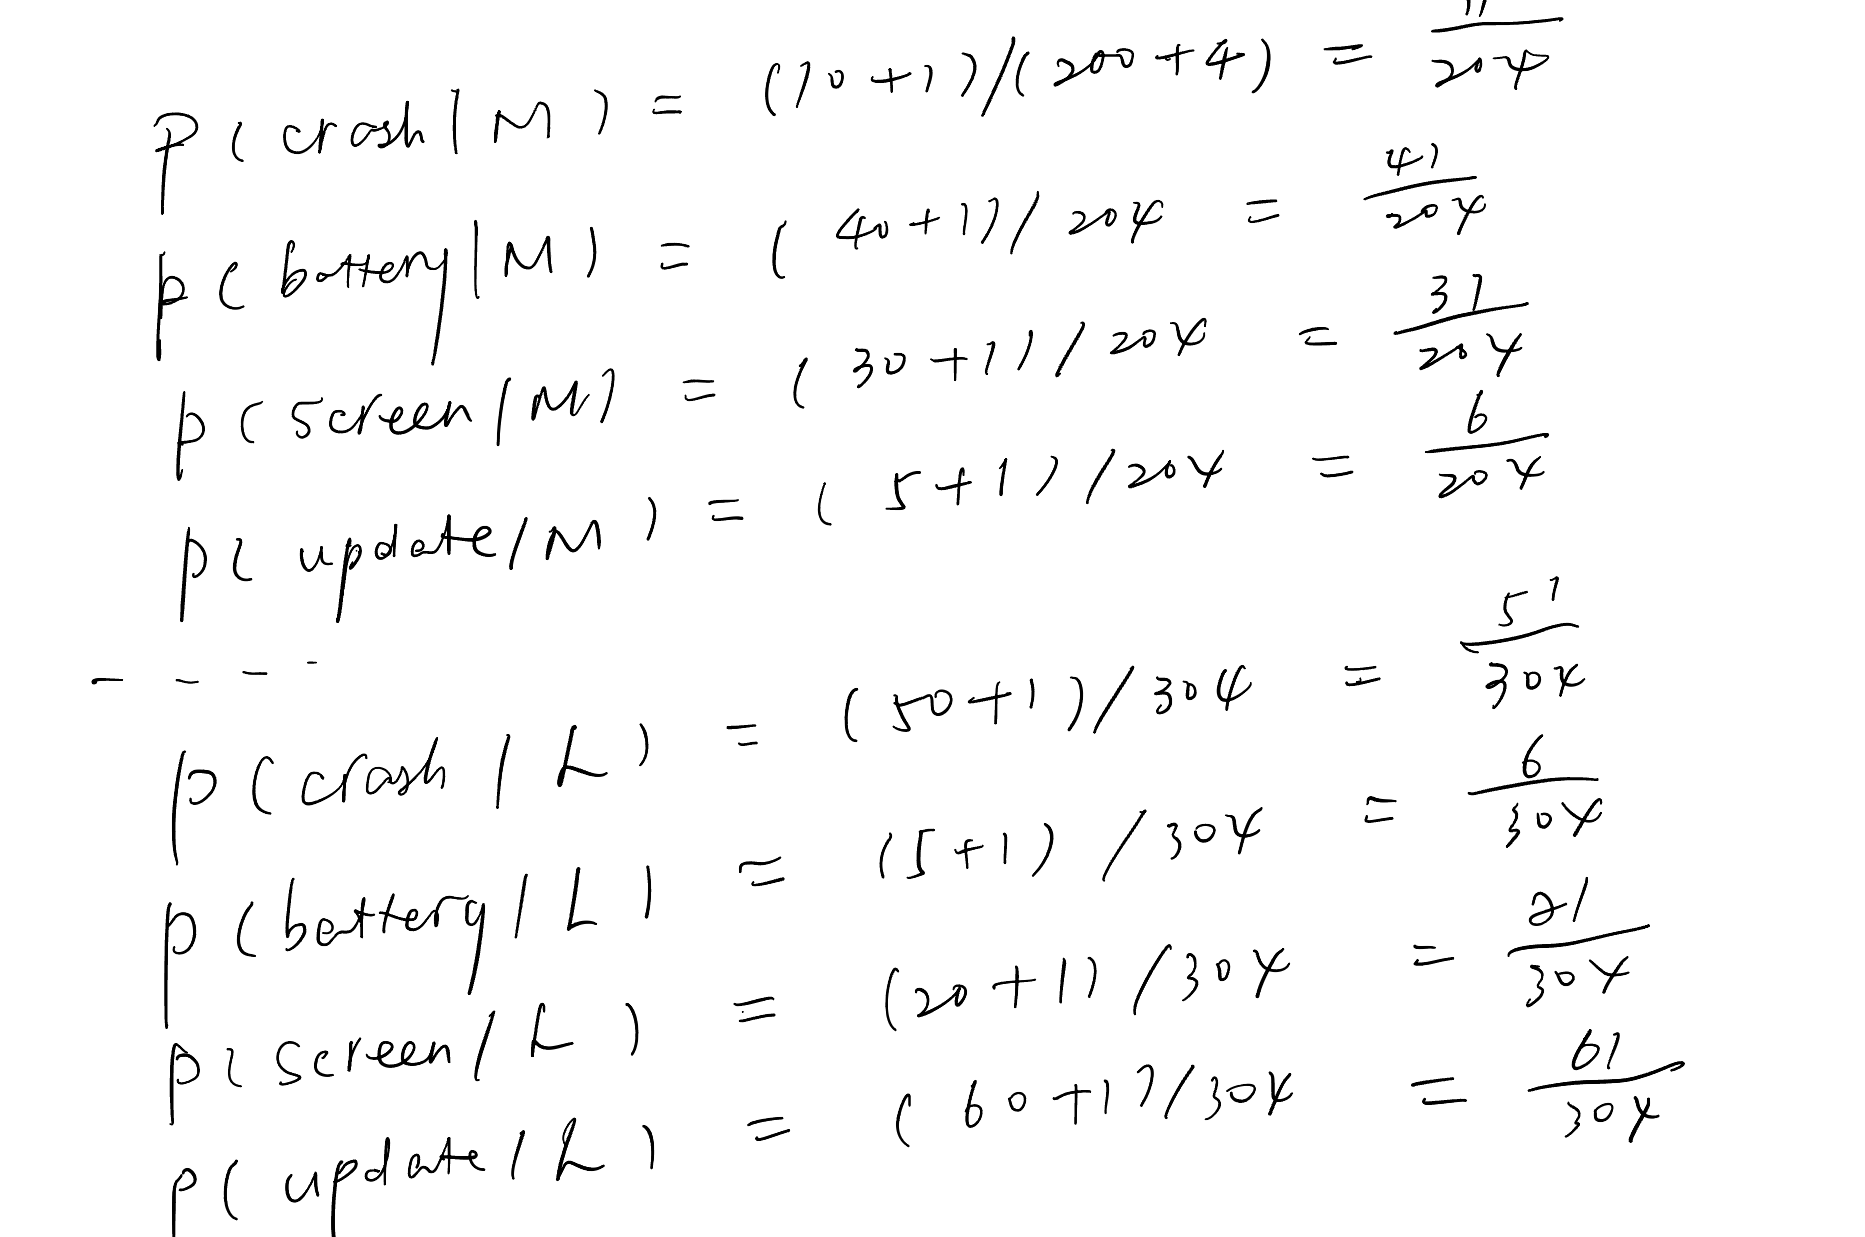 P(crash|M) = (10+1)/(200+4) = 11/204
p(battery|M) = (40+1)/204 = 41/204
p(screen|M) = (30+1)/204 = 31/204
p(update|M) = (5+1)/204 = 6/204
- - - -
p(crash|L) = (50+1)/304 = 51/304
p(battery|L) = (5+1)/304 = 6/304
p(screen|L) = (20+1)/304 = 21/304
p(update|L) = (60+1)/304 = 61/304